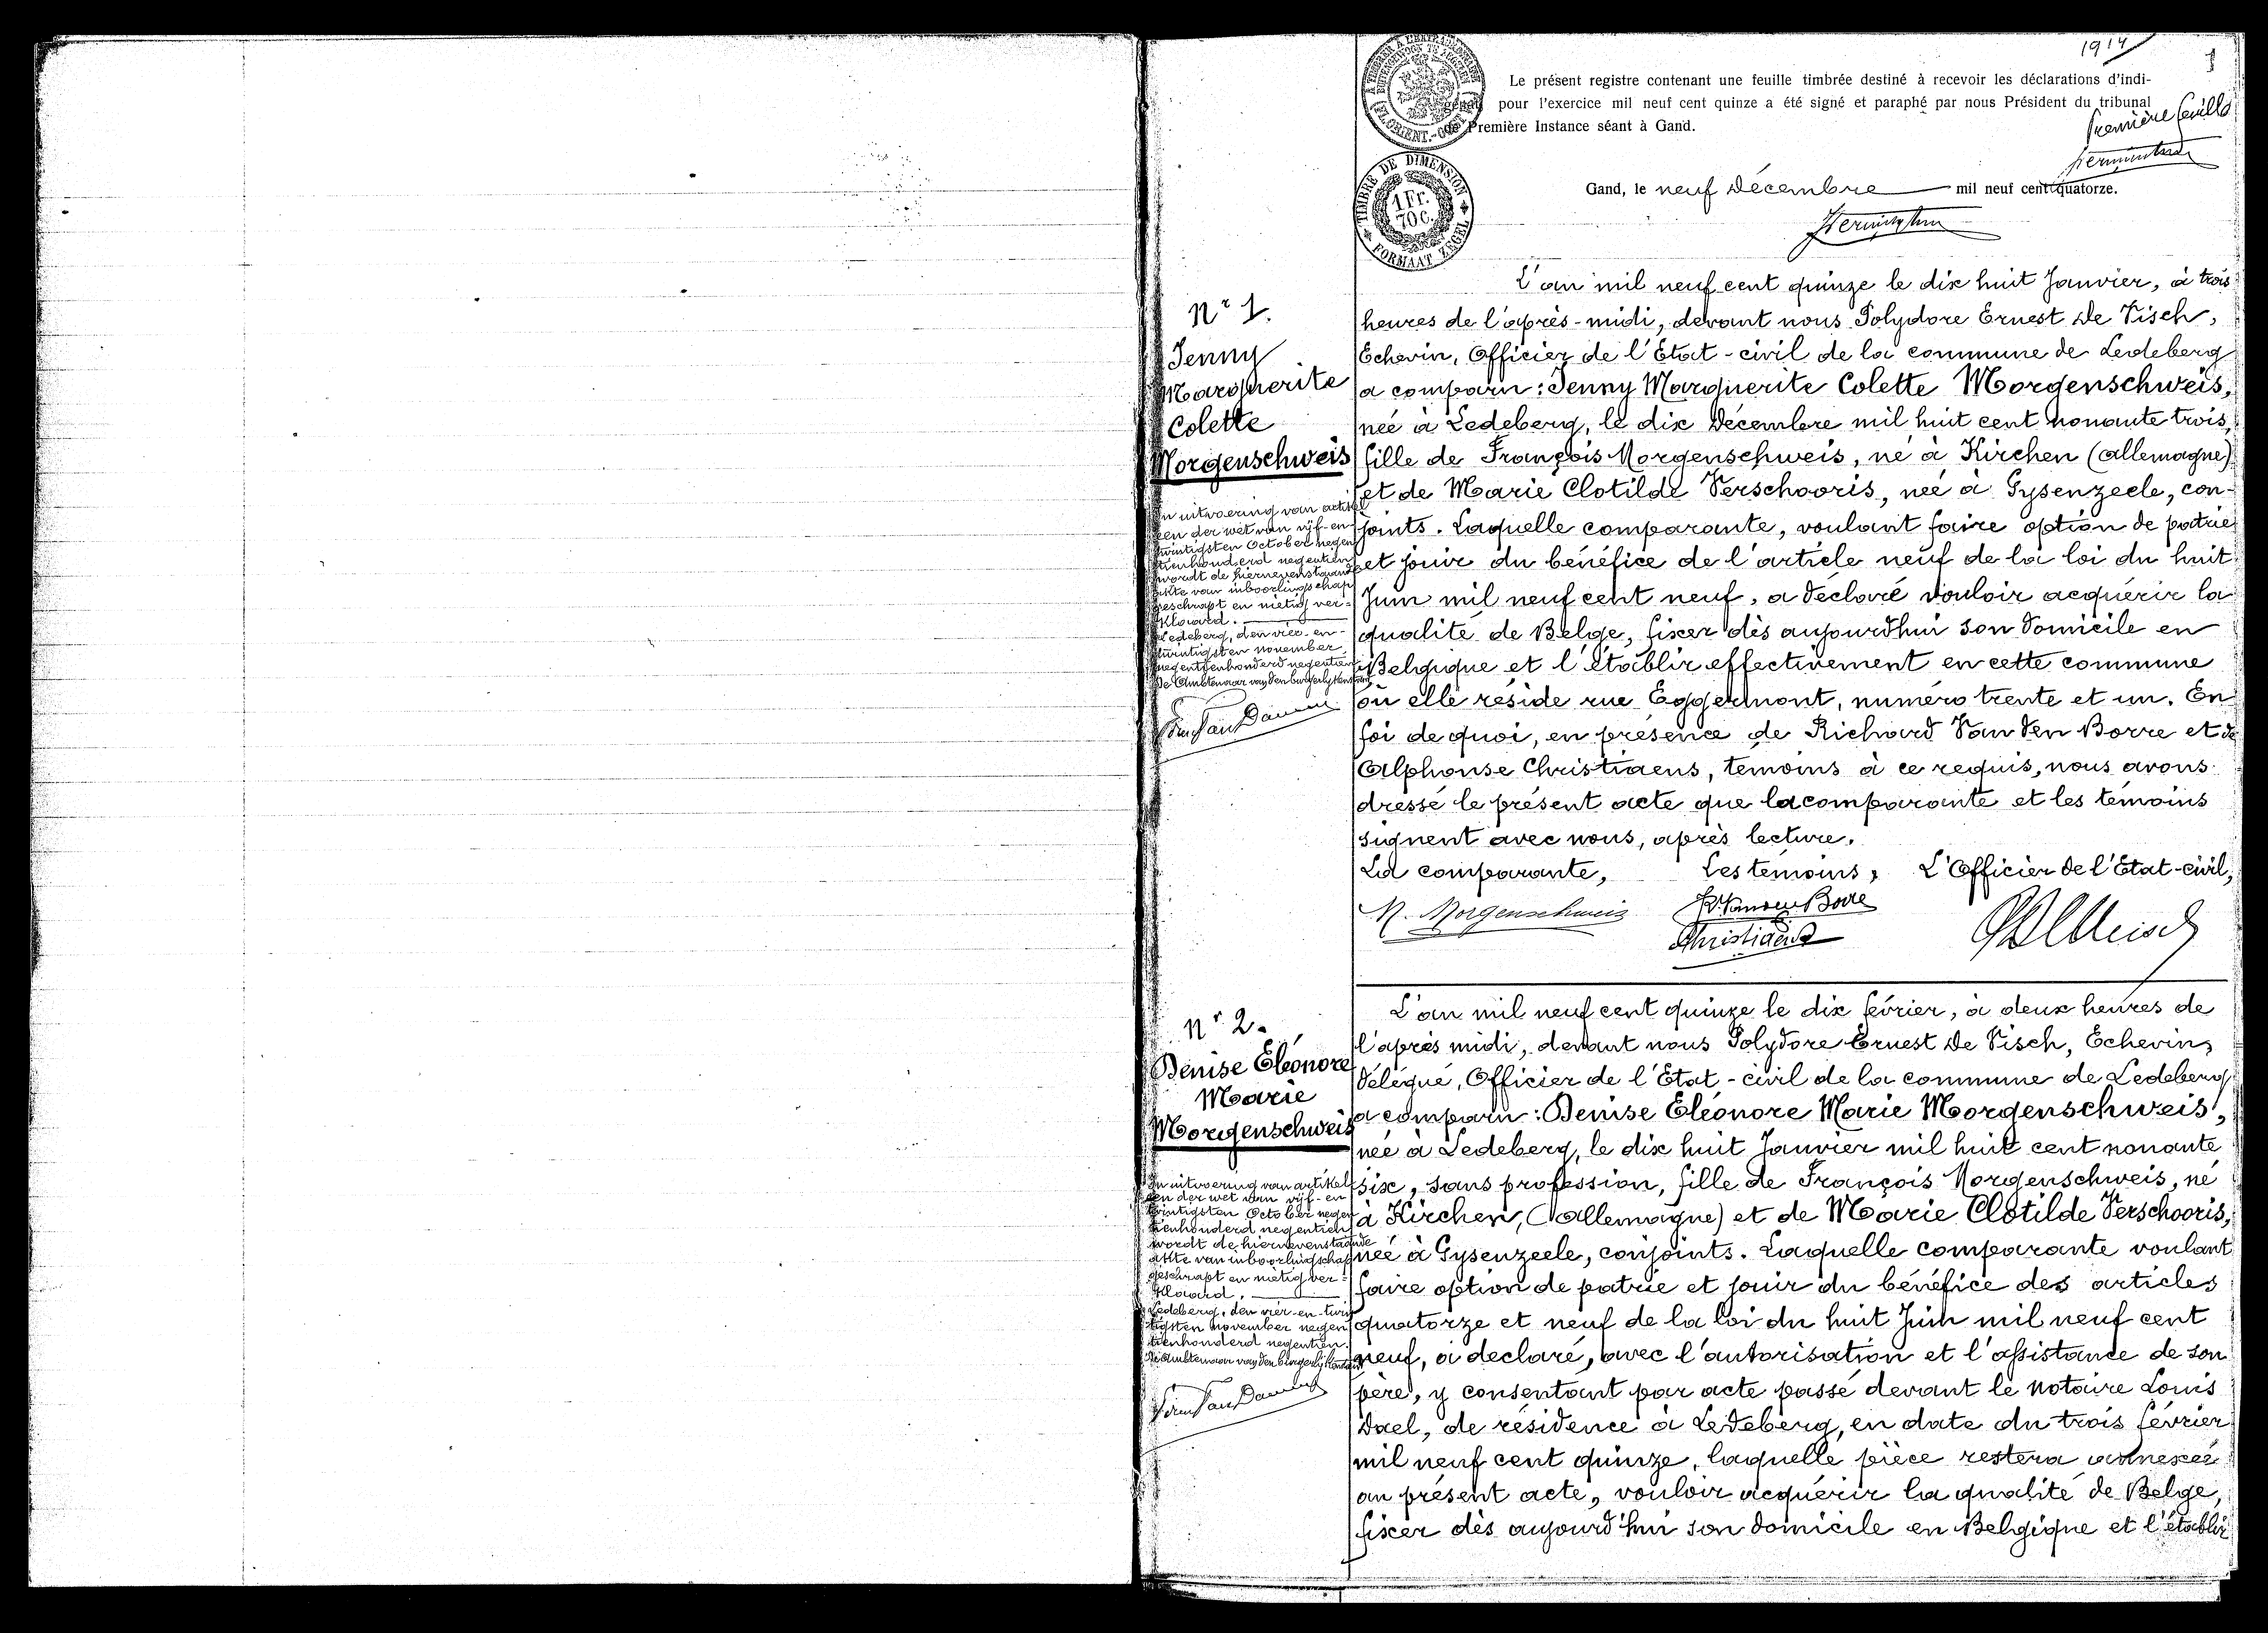 1914
1
Le présent registre contenant une feuille timbrée destiné à recevoir les déclarations d'indi-
génat pour l'exercice mil neuf cent quinze a été signé et paraphé par nous Président du tribunal
de Première Instance séant à Gand.
Première feuille
TIMBRE DE DIMENSION
1 Fr.
70 c.
FORMAAT ZEGEL
Gand, le neuf Décembre mil neuf cent quatorze.
Nr 1.
Jenny
Marguerite
Colette
Morgenschweis
In uitvoering van artikel
een der wet van vijf-en
twintigsten October negen
tienhonderd negentien
wordt de hiernevenstaande
akte van inboorlingschap
geschrapt en nietig ver-
klaard.
Ledeberg, den vier-en-
twintigsten november
negentienhonderd negentien
De Ambtenaar van den burgerlijken stand
L'an mil neuf cent quinze le dix huit Janvier, à trois
heures de l'après-midi, devant nous Polydore Ernest De Visch,
Echevin, Officier de l'Etat-civil de la commune de Ledeberg
a comparu : Jenny Marguerite Colette Morgenschweis,
née à Ledeberg, le dix Décembre mil huit cent nonante trois,
fille de François Morgenschweis, né à Kirchen (Allemagne)
et de Marie Clotilde Verschooris, née à Gysenzeele, con-
joints. Laquelle comparante, voulant faire option de patrie
et jouir du bénéfice de l'article neuf de la loi du huit
Juin mil neuf cent neuf, a déclaré vouloir acquérir la
qualité de Belge, fixer dès aujourd'hui son domicile en
Belgique et l'établir effectivement en cette commune
où elle réside rue Eggermont, numéro trente et un. En
foi de quoi, en présence de Richard Van den Borre et de
Alphonse Christiaens, témoins à ce requis, nous avons
dressé le présent acte que la comparante et les témoins
signent avec nous, après lecture.
La comparante, Les témoins, L'Officier de l'Etat-civil,
M. Morgenschweis R. Van den Borre
Christiaens
Nr 2.
Denise Eléonore
Marie
Morgenschweis
In uitvoering van artikel
een der wet van vijf-en
twintigsten October negen
tienhonderd negentien
wordt de hiernevenstaande
akte van inboorlingschap
geschrapt en nietig ver-
klaard.
Ledeberg, den vier-en-twin
tigsten november negen
tienhonderd negentien.
De Ambtenaar van den burgerlijken stand
L'an mil neuf cent quinze le dix février, à deux heures de
l'après midi, devant nous Polydore Ernest De Visch, Echevin,
délégué, Officier de l'Etat-civil de la commune de Ledeberg
a comparu : Denise Eléonore Marie Morgenschweis,
née à Ledeberg, le dix huit Janvier mil huit cent nonante
six, sans profession, fille de François Morgenschweis, né
à Kirchen, (Allemagne) et de Marie Clotilde Verschooris,
née à Gysenzeele, conjoints. Laquelle comparante voulant
faire option de patrie et jouir du bénéfice des articles
quatorze et neuf de la loi du huit Juin mil neuf cent
neuf, a declaré, avec l'autorisation et l'assistance de son
père, y consentant par acte passé devant le notaire Louis
Dael, de résidence à Ledeberg, en date du trois février
mil neuf cent quinze, laquelle pièce restera annexée
au présent acte, vouloir acquérir la qualité de Belge,
fixer dès aujourd'hui son domicile en Belgique et l'établir